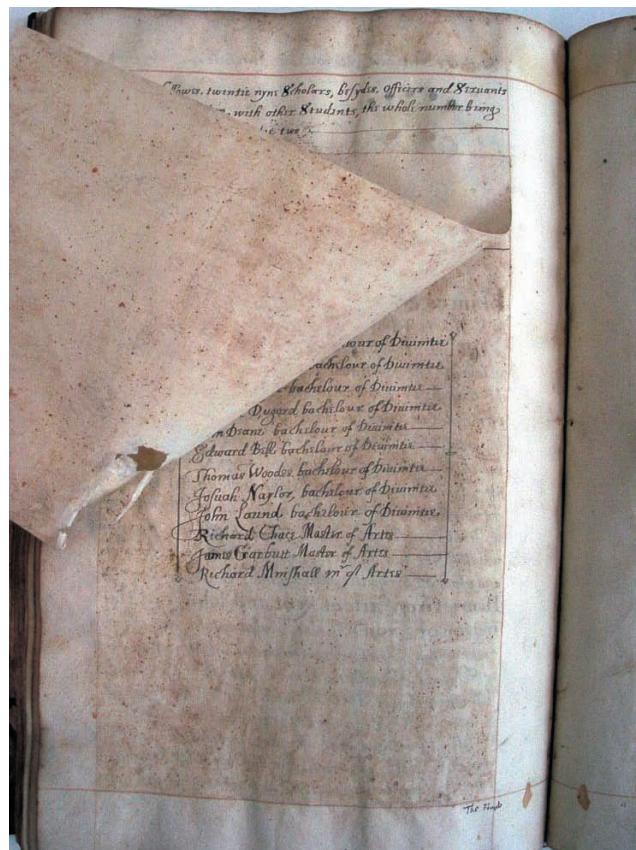 twentie nyne Scholars, besydes Officers and Servants
with other Students, the whole number being
two
bachelour of Divinitie
bachelour of Divinitie
Dugord bachelour of Divinitie
Deane bachelour of Divinitie
Edward bachelour of Divinitie
Thomas Woodes bachelour of Divinitie
Josuah Naylor, bachelour of Divinitie
John Laund bachelour of Divinitie
Richard Chace Master of Artes
James Garbutt Master of Artes
Richard Minshall mr of Artes
The